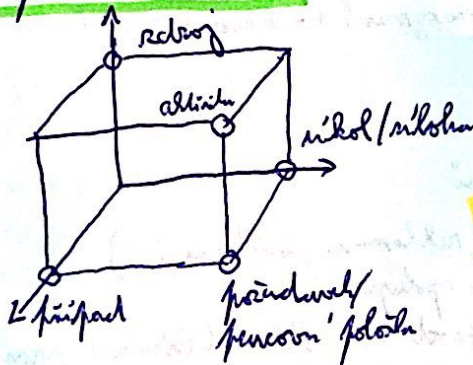 zdroj
aktivita
úkol/úloha
případ
požadavek/
pracovní položka